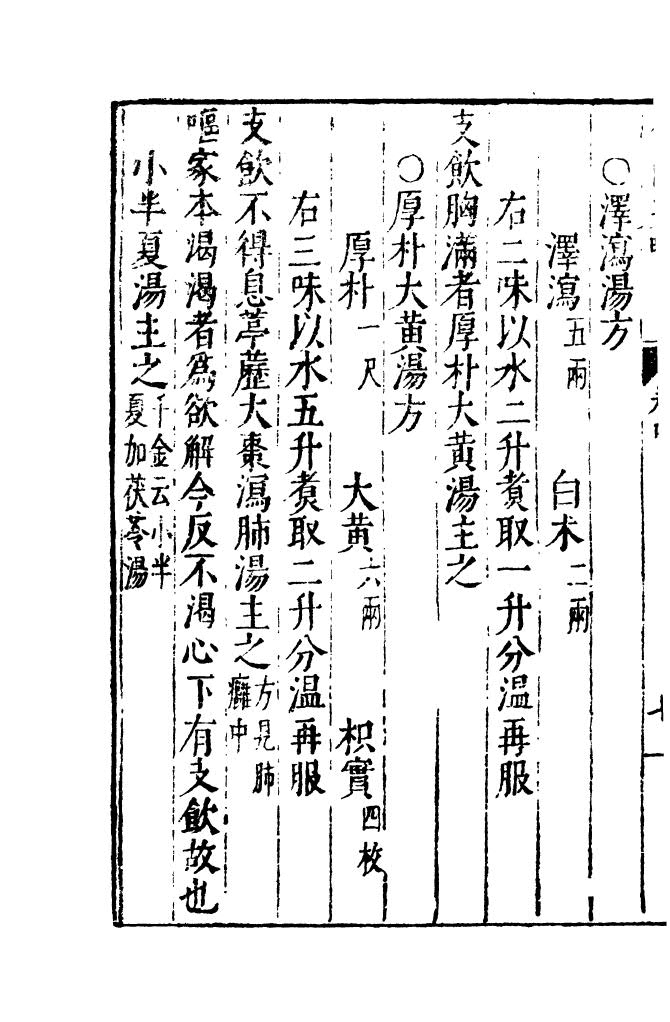 ○澤瀉湯方
澤瀉五兩 白术二兩
右二味以水二升煑取一升分温再服
支飲胸滿者厚朴大黃湯主之
○厚朴大黃湯方
厚朴一尺 大黃六兩 枳實四枚
右三味以水五升煑取二升分温再服
支飲不得息葶藶大棗瀉肺湯主之方見肺癰中
嘔家本渴渴者爲欲解今反不渴心下有支飲故也
小半夏湯主之千金云小半夏加茯苓湯